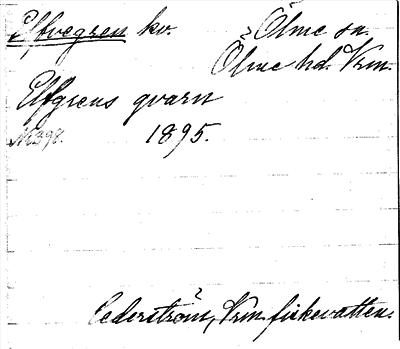 Elfvegren kv. Ölme sn.
Ölme hd. Vrm.
Elfgrens qvarn
1895.
Cederström, Vrm. fiskevatten.